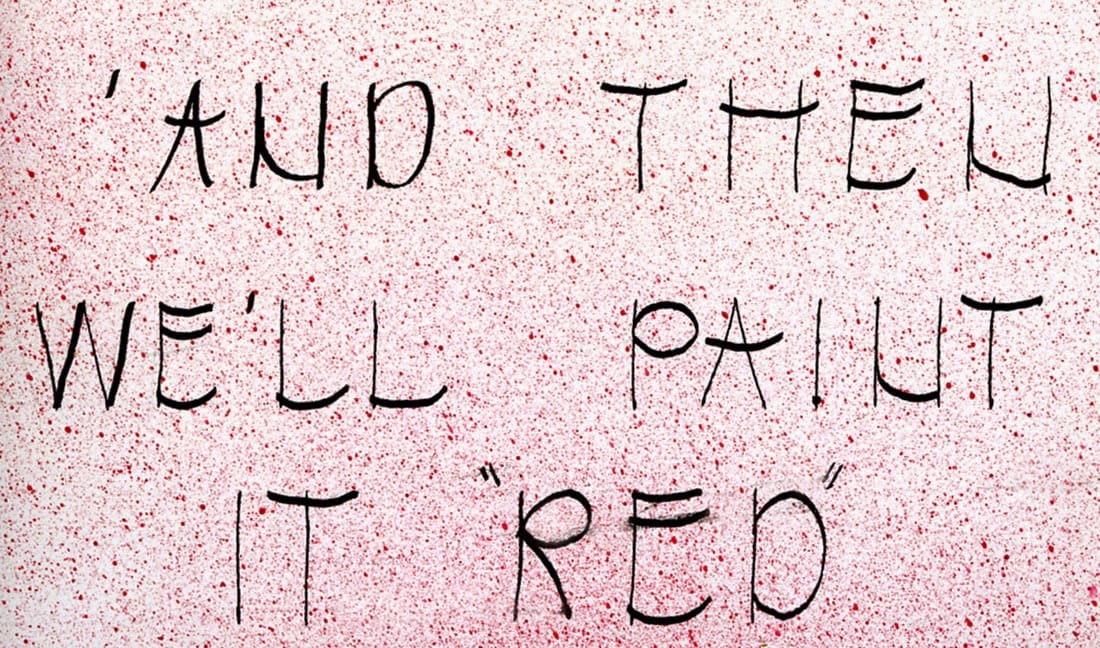 'AND THEN
WE'LL PAINT
IT "RED"